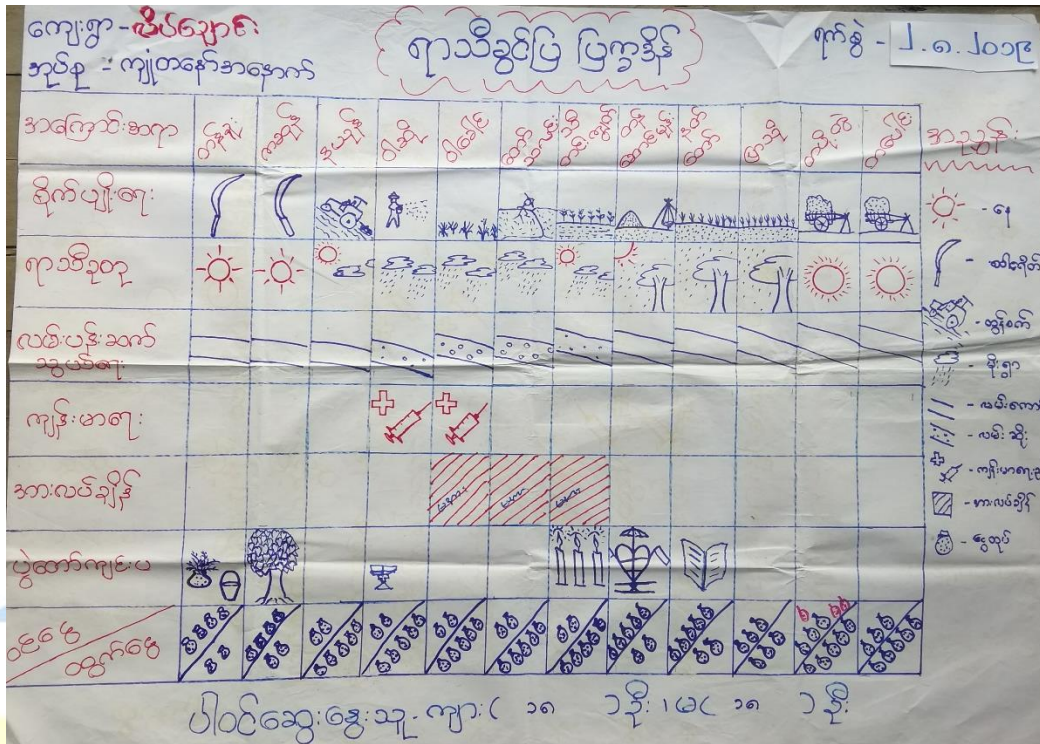 ကျေးရွာ - လိပ်ချောင်း
အုပ်စု - ကျုံတနော်အနောက်
ရာသီခွင်ပြ ပြက္ခဒိန်
ရက်စွဲ - ၂.၈.၂၀၁၉
အကြောင်းအရာ
တန်ခူး
ကဆုန်
နယုန်
ဝါဆို
ဝါခေါင်
တော်သလင်း
သီတင်းကျွတ်
တန်ဆောင်မုန်း
နတ်တော်
ပြာသို
တပို့တွဲ
တပေါင်း
အညွှန်း
စိုက်ပျိုးရေး
ရာသီဥတု
လမ်းပန်းဆက်သွယ်ရေး
ကျန်းမာရေး
အားလပ်ချိန်
ပွဲတော်ကျင်းပ
ဝင်ငွေ
ထွက်ငွေ
- နေ
- တံစဉ်
- ထွန်စက်
- မိုးရွာ
- လမ်းကောင်း
- လမ်းဆိုး
- ကျန်းမာရေး
- အားလပ်ချိန်
- ငွေထုပ်
ပါဝင်ဆွေးနွေးသူ - ကျား ( ၁၈ ) ဦး ၊ မ ( ၁၈ ) ဦး